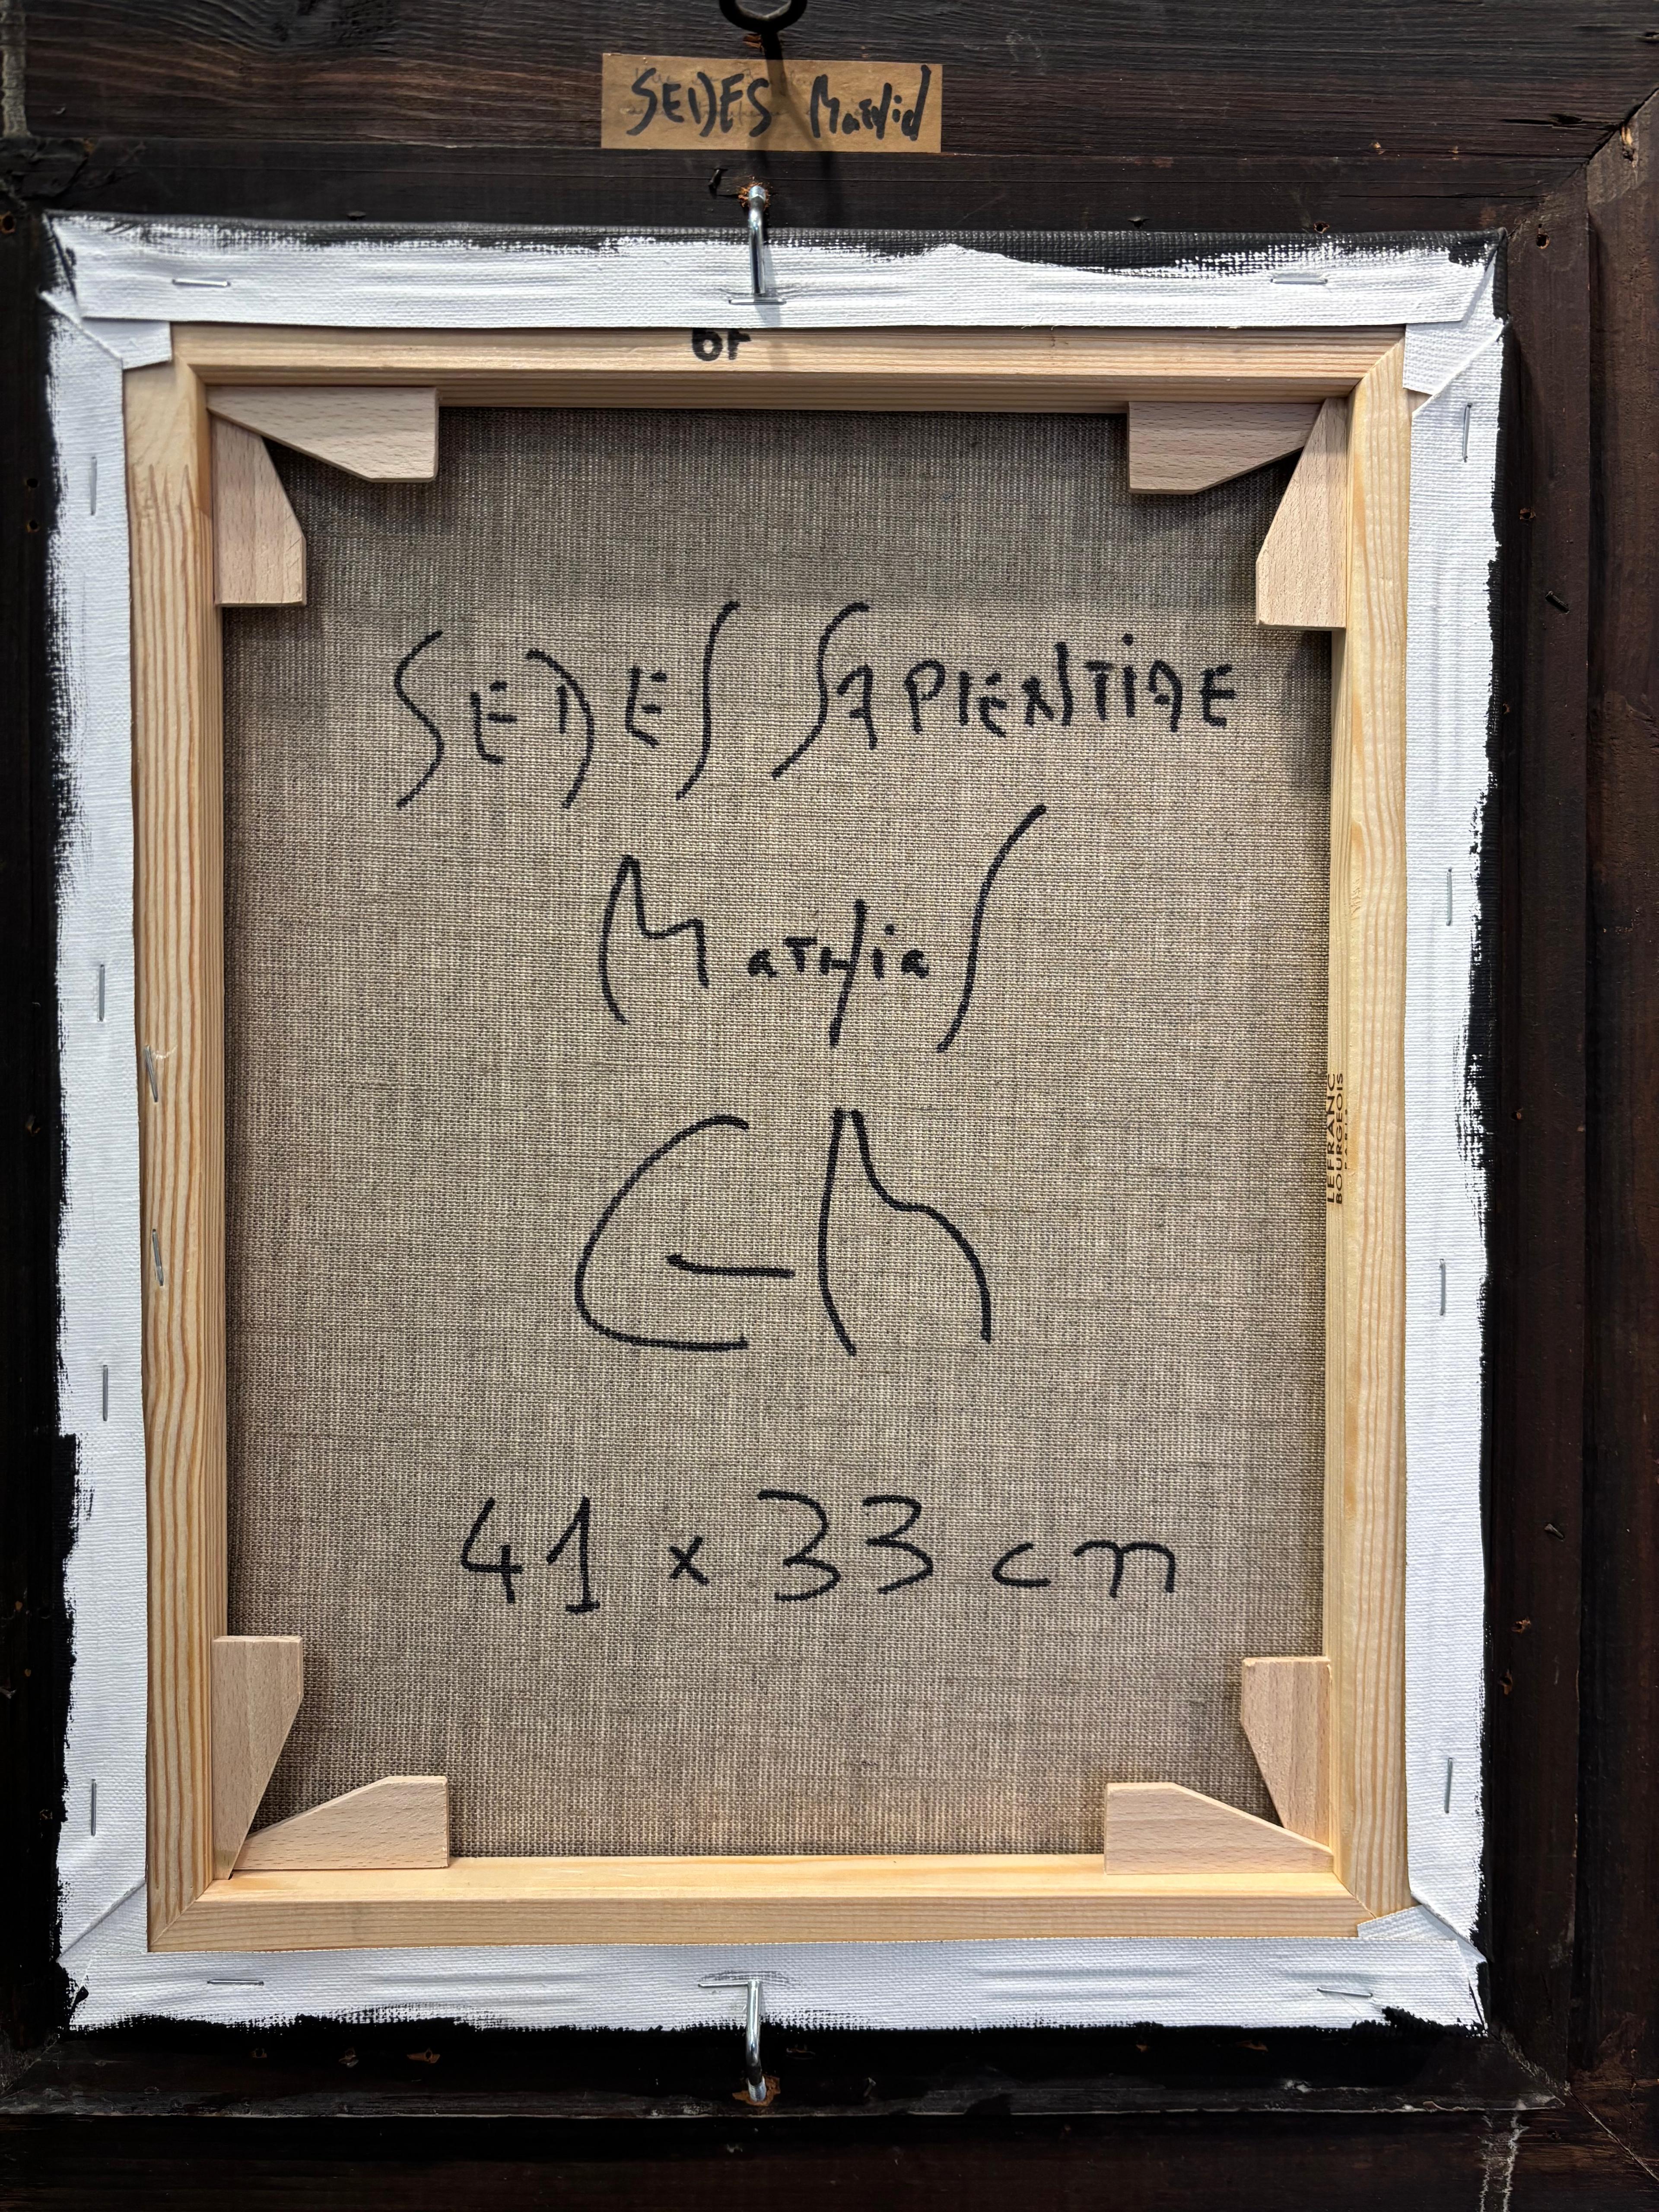 SEDES Mathid
6F
SEDES SAPIENTIAE
MaTHiaS
41 x 33 cm
LEFRANC
BOURGEOIS
PARIS